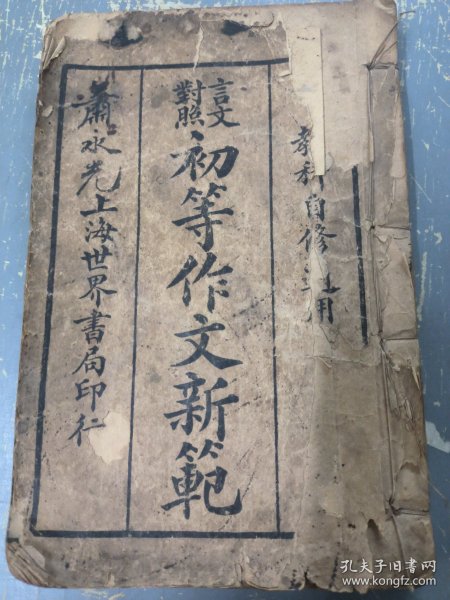 教科自修適用
言文對照
初等作文新範
蕭永光上海世界書局印行
孔夫子旧书网
www.kongfz.com